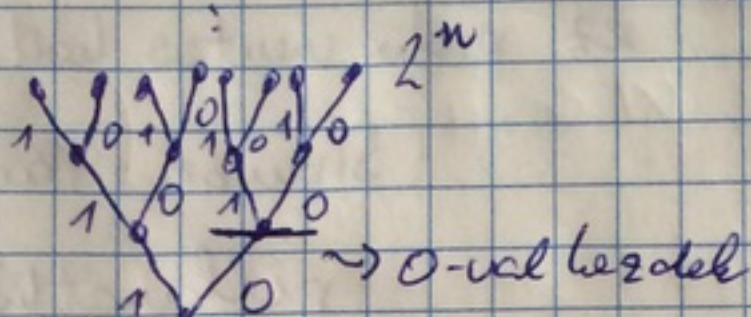 ⋮
2ⁿ
1 0 1 0 1 0 1 0
1 0 1 0
~> 0-val kezdek
1 0